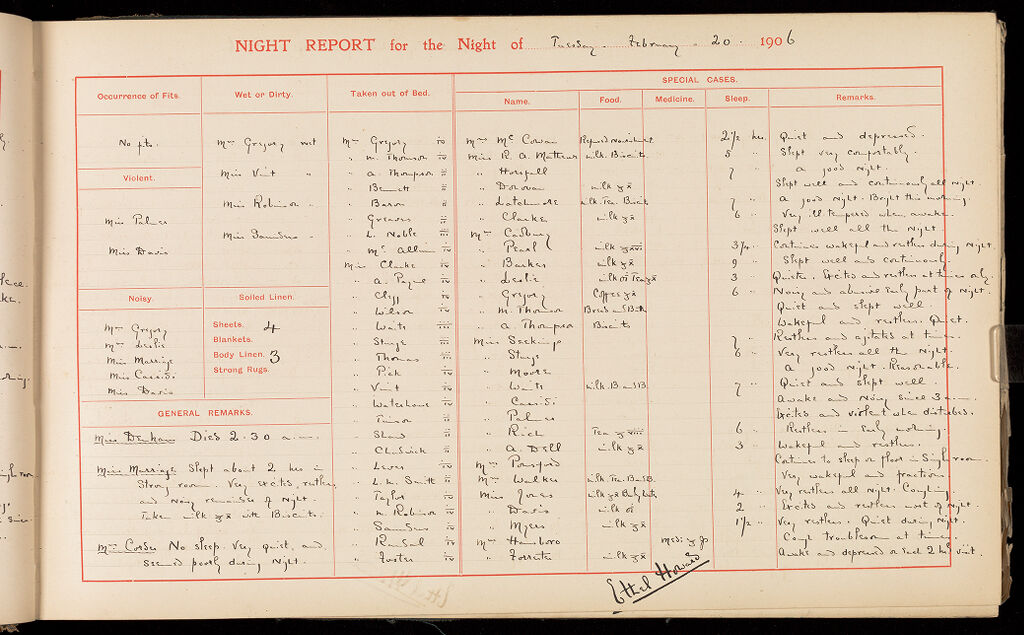 NIGHT REPORT for the Night of Tuesday. February. 20. 1906
SPECIAL CASES.
Occurrence of Fits. Wet or Dirty. Taken out of Bed. Name. Food. Medicine. Sleep. Remarks.
No fits.
Violent.
Miss Palmer
Miss Davis
Noisy.
Mrs Gregory
Mrs Leslie
Miss Marriage
Miss Cassidi
Miss Davis
Mrs Gregory wet
Miss Vint "
Miss Robinson "
Miss Saunders "
Soiled Linen.
Sheets. 4
Blankets.
Body Linen. 3
Strong Rugs.
GENERAL REMARKS.
Miss Denham Died 2.30 a.m.
Miss Marriage Slept about 2 hrs in
Strong room. Very excited, restless
and Noisy remainder of Night.
Taken milk with Biscuits.
Mrs Corder No sleep. Very Quiet, and
seemed poorly during Night.
Mrs Gregory
" M. Thomson
" A. Thompson
" Bennett
" Baron
" Greaves
" L. Noble
" Mc Allum
Miss Clarke
" A. Payne
" Cliff
" Wilson
" Waits
" Sturge
" Thomas
" Pick
" Vint
" Waterhouse
" Shaw
" Chadwick
" Lewis
" L. M. Smith
" Taylor
" M. Robinson
" Saunders
" Foster
Mrs Mc Cowan 2 1/2 hrs Quiet and depressed.
Miss R. A. Mathews milk. Biscuits 5 " Slept very comfortably.
" Horsfall 7 " A good Night.
" Donovan milk Slept well and continuously all Night.
" Latchmore milk. Tea. Biscuit 7 " A good Night. Bright this morning.
" Clarke milk 6 " Very ill tempered when awake.
Mrs Cadbury Slept well all the Night.
" Pearl milk 3/4 " Continues wakeful and restless during Night.
" Barker milk 9 " Slept well and continuously.
" Leslie milk or Tea 3 " Quieter. Excited and restless at times only.
" Gregory Coffee 6 " Noisy and abusive early part of Night.
" M. Thomson Bread and Butter Quiet and slept well.
" A. Thompson Biscuits Wakeful and restless. Quiet.
Miss Seekings 7 " Restless and agitated at times.
" Sturge 6 " Very restless all the Night.
" Moore A good Night. Reasonable.
" Waits milk. B and B. 7 " Quiet and slept well.
" Cassidi Awake and Noisy since 3 a.m.
" Palmer Excited and violent when disturbed.
" Rich Tea 6 " Restless in early morning.
" A. Dell milk 3 " Wakeful and restless.
Mrs Ponsford Continues to sleep on floor in Single room.
Mrs Walker milk. Tea. B and B. Very wakeful and fractious.
Miss Jones milk 4 " Very restless all Night. Coughing.
" Davis milk 2 " Excited and restless most of Night.
" Myers milk 1 1/2 " Very restless. Quiet during Night.
Mrs Hansboro Cough troublesome at times.
" Forrester milk Awake and depressed
Ethel Howard